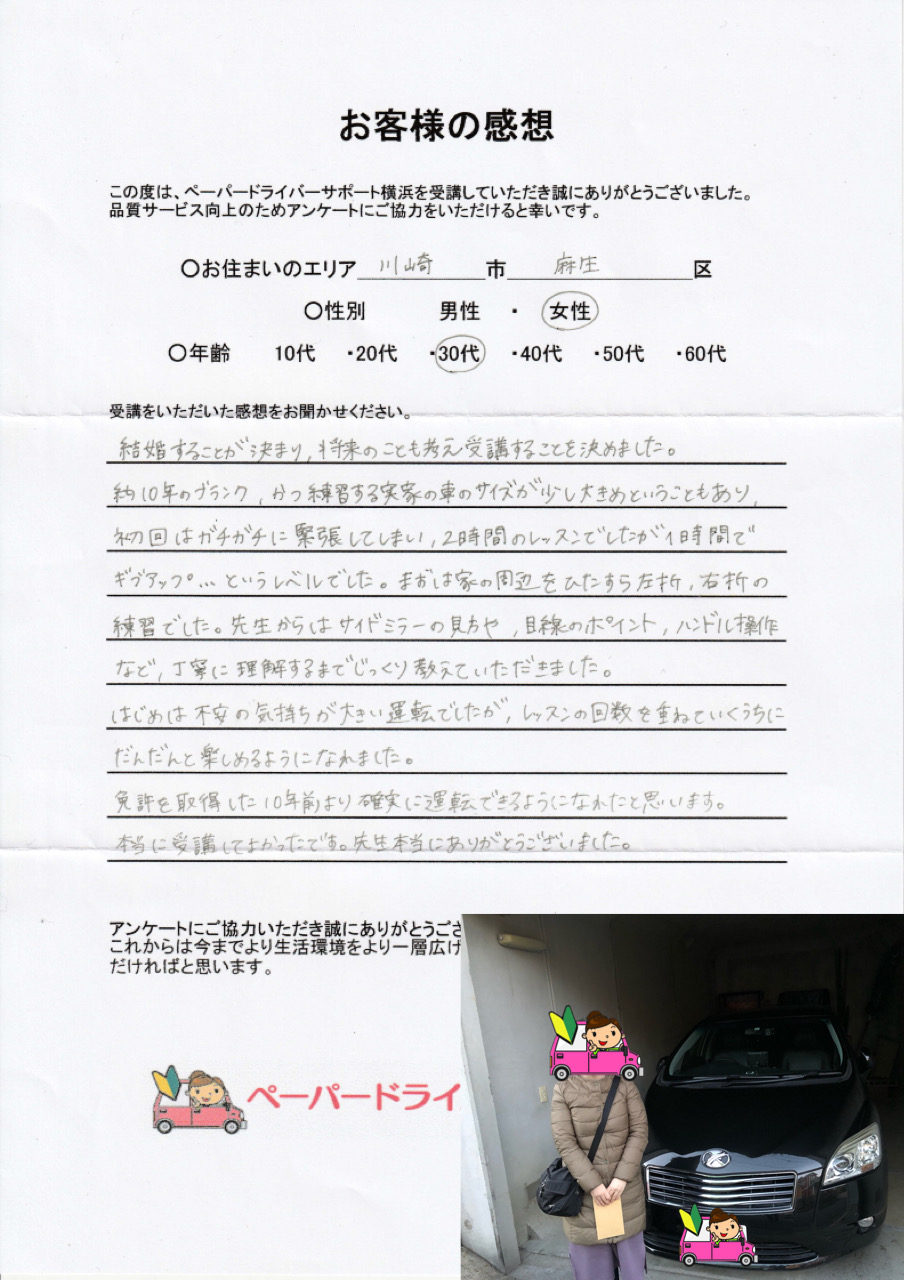 お客様の感想
この度は、ペーパードライバーサポート横浜を受講していただき誠にありがとうございました。
品質サービス向上のためアンケートにご協力をいただけると幸いです。
〇お住まいのエリア 川崎 市 麻生 区
〇性別 男性 ・ 女性
〇年齢 10代 ・20代 ・30代 ・40代 ・50代 ・60代
受講をいただいた感想をお聞かせください。
結婚することが決まり,将来のことも考え受講することを決めました。
約10年のブランク,かつ練習する実家の車のサイズが少し大きめということもあり,
初回はガチガチに緊張してしまい,2時間のレッスンでしたが1時間で
ギブアップ…というレベルでした。まずは家の周辺をひたすら左折,右折の
練習でした。先生からはサイドミラーの見方や,目線のポイント,ハンドル操作
など,丁寧に理解するまでじっくり教えていただきました。
はじめは不安の気持ちが大きい運転でしたが,レッスンの回数を重ねていくうちに
だんだんと楽しめるようになれました。
免許を取得した10年前より確実に運転できるようになれたと思います。
本当に受講してよかったです。先生本当にありがとうございました。
アンケートにご協力いただき誠にありがとうござ
これからは今までより生活環境をより一層広げ
だければと思います。
ペーパードライ